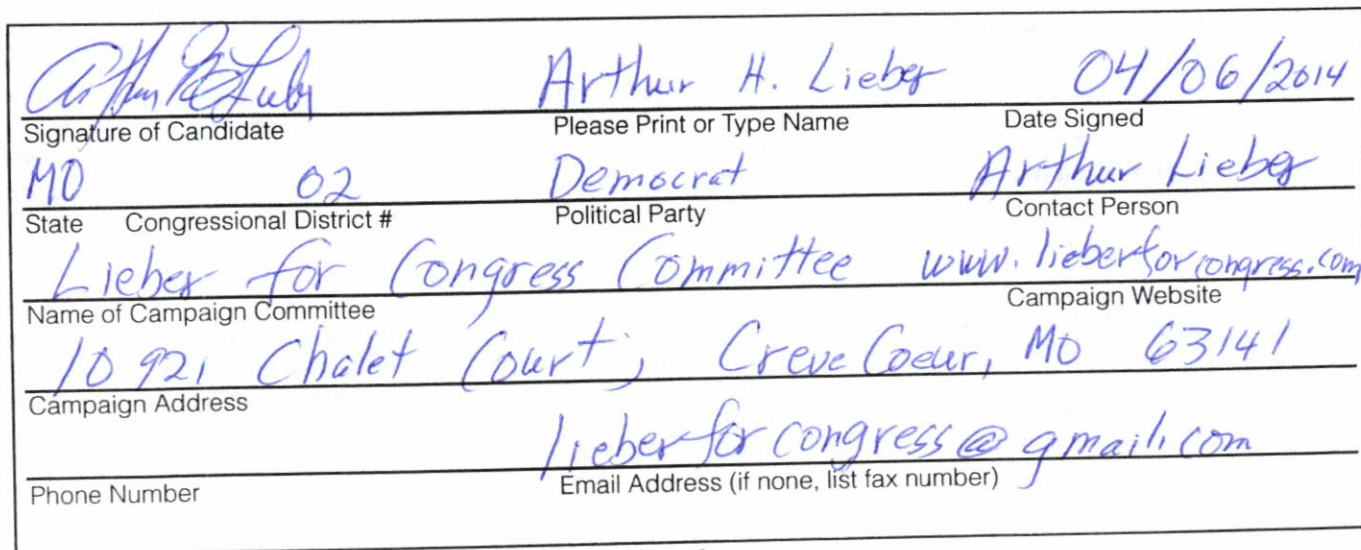 Arthur H. Lieber 04/06/2014
Signature of Candidate Please Print or Type Name Date Signed
MO 02 Democrat Arthur Lieber
State Congressional District # Political Party Contact Person
Lieber for Congress Committee www.lieberforcongress.com
Name of Campaign Committee Campaign Website
10921 Chalet Court, Creve Coeur, MO 63141
Campaign Address
lieberforcongress@gmail.com
Phone Number Email Address (if none, list fax number)